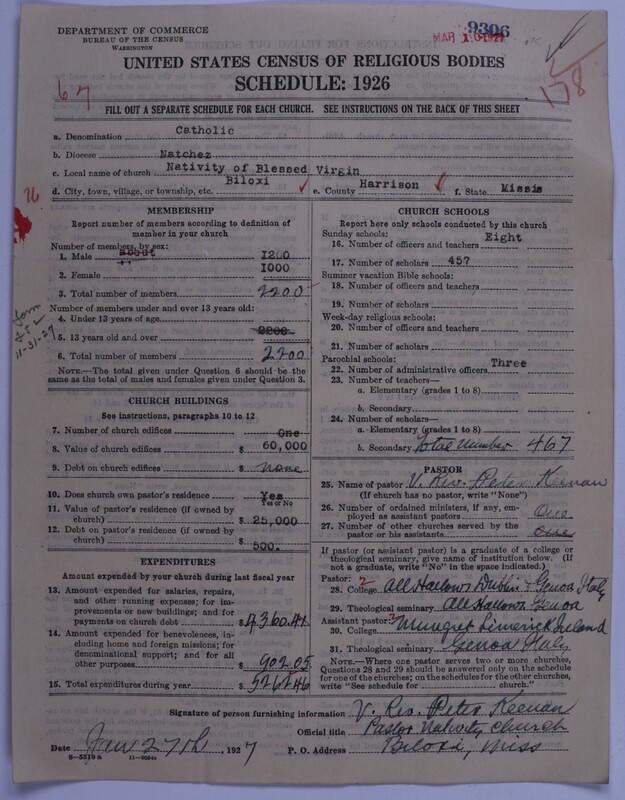 DEPARTMENT OF COMMERCE
BUREAU OF THE CENSUS
WASHINGTON
9306
MAR 10 1927
178
67
UNITED STATES CENSUS OF RELIGIOUS BODIES
SCHEDULE: 1926
FILL OUT A SEPARATE SCHEDULE FOR EACH CHURCH. SEE INSTRUCTIONS ON THE BACK OF THIS SHEET
a. Denomination Catholic
b. Diocese Natchez
c. Local name of church Nativity of Blessed Virgin
d. City, town, village, or township, etc. Biloxi e. County Harrison f. State Missis
MEMBERSHIP
Report number of members according to definition of
member in your church
Number of members, by sex:
1. Male About 1200
2. Female " 1000
3. Total number of members 2200
Number of members under and over 13 years old:
4. Under 13 years of age
5. 13 years old and over 2200
6. Total number of members 2200
NOTE.—The total given under Question 6 should be the
same as the total of males and females given under Question 3.
CHURCH BUILDINGS
See instructions, paragraphs 10 to 12
7. Number of church edifices One
8. Value of church edifices $ 60,000
9. Debt on church edifices $ none
10. Does church own pastor's residence Yes
Yes or No
11. Value of pastor's residence (if owned by
church) $ 25,000
12. Debt on pastor's residence (if owned by
church) $ 500.
EXPENDITURES
Amount expended by your church during last fiscal year
13. Amount expended for salaries, repairs,
and other running expenses; for im-
provements or new buildings; and for
payments on church debt $ 4360.41
14. Amount expended for benevolences,
including home and foreign missions; for
denominational support; and for all
other purposes $ 902.05
15. Total expenditures during year $ 5262.46
CHURCH SCHOOLS
Report here only schools conducted by this church
Sunday schools:
16. Number of officers and teachers Eight
17. Number of scholars 457
Summer vacation Bible schools:
18. Number of officers and teachers
19. Number of scholars
Week-day religious schools:
20. Number of officers and teachers
21. Number of scholars
Parochial schools:
22. Number of administrative officers Three
23. Number of teachers—
a. Elementary (grades 1 to 8)
b. Secondary
24. Number of scholars—
a. Elementary (grades 1 to 8)
b. Secondary Total number 467
PASTOR
25. Name of pastor V. Rev. Peter Keenan
(If church has no pastor, write "None")
26. Number of ordained ministers, if any, em-
ployed as assistant pastors One
27. Number of other churches served by the
pastor one
If pastor (or assistant pastor) is a graduate of a college or
theological seminary, give name of institution below. (If
not a graduate, write "No" in the space indicated.)
Pastor: 2
28. College All Hallows Dublin & Genoa Italy
29. Theological seminary All Hallows. Genoa
Assistant pastor: 2
30. College Mungret Limerick Ireland
31. Theological seminary Genoa Italy
NOTE.—Where one pastor serves two or more churches,
Questions 28 and 29 should be answered only on the schedule
for one of the churches; on the schedules for the other churches,
write "See schedule for church."
Signature of person furnishing information V. Rev. Peter Keenan
Official title Pastor Nativity Church
Date Jan 27th, 1927 P. O. Address Biloxi, Miss